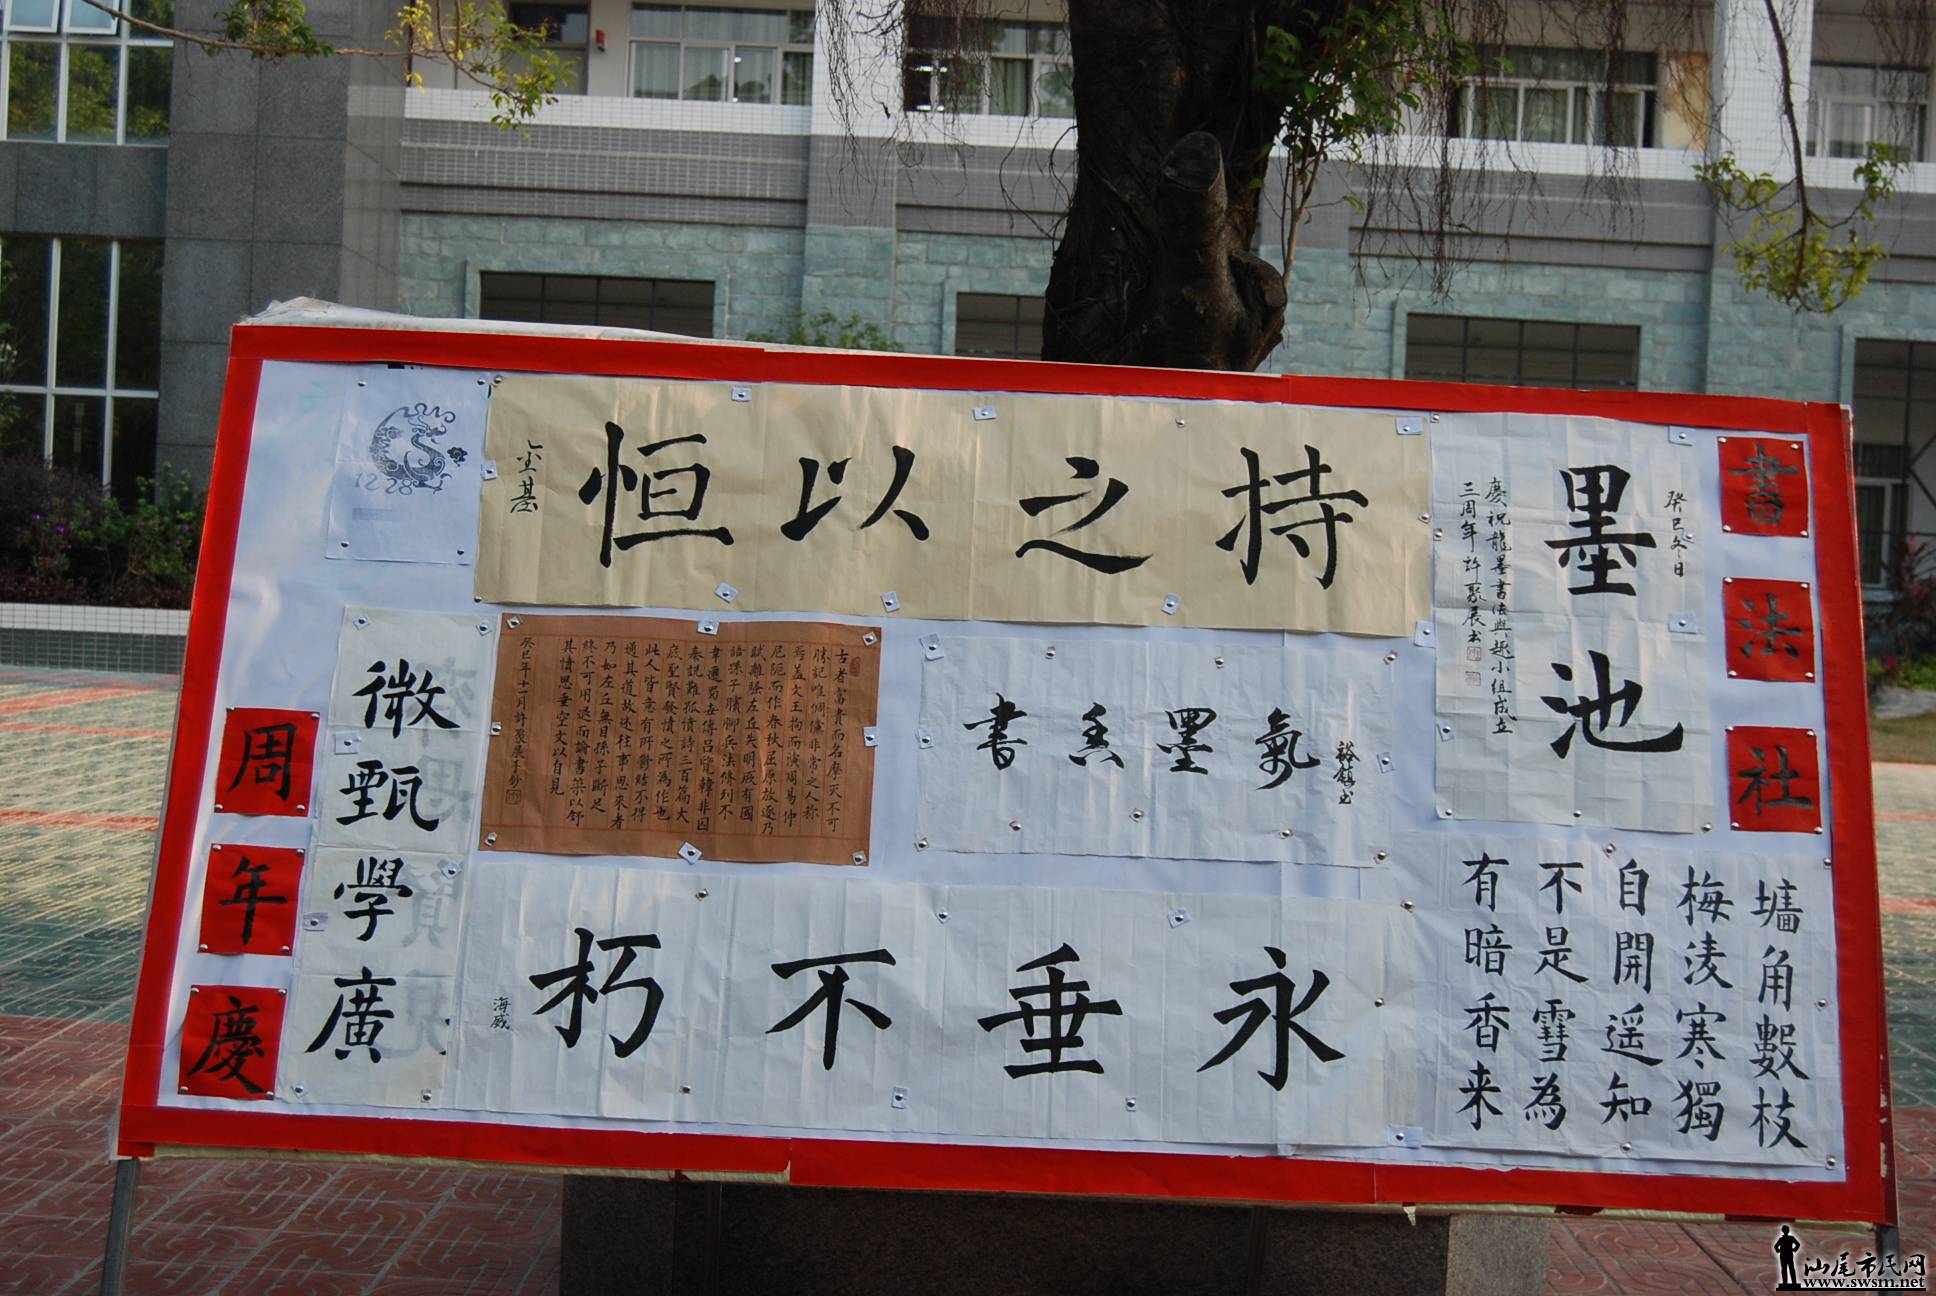 書法社
癸巳冬日
墨池
慶祝龍墨書法興趣小組成立
三周年 許聚展书
持之以恒
金基
12 28
書香墨氣
裕鎮书
古者富貴而名摩灭不可
勝記唯倜儻非常之人称
焉盖文王拘而演周易仲
尼厄而作春秋屈原放逐乃
賦離騷左丘失明厥有國
語孫子臏脚兵法修列不
韋遷蜀世傳吕覽韓非囚
秦説難孤憤詩三百篇大
底聖賢發憤之所為作也
此人皆意有所鬱結不得
通其道故述往事思來者
乃如左丘無目孫子斷足
終不可用退而論書策以舒
其憤思垂空文以自見
癸巳年十一月許聚展手鈔
墻角數枝
梅淩寒獨
自開遥知
不是雪為
有暗香来
永垂不朽
海威
微甄學廣
周年慶
汕尾市民网
www.swsm.net